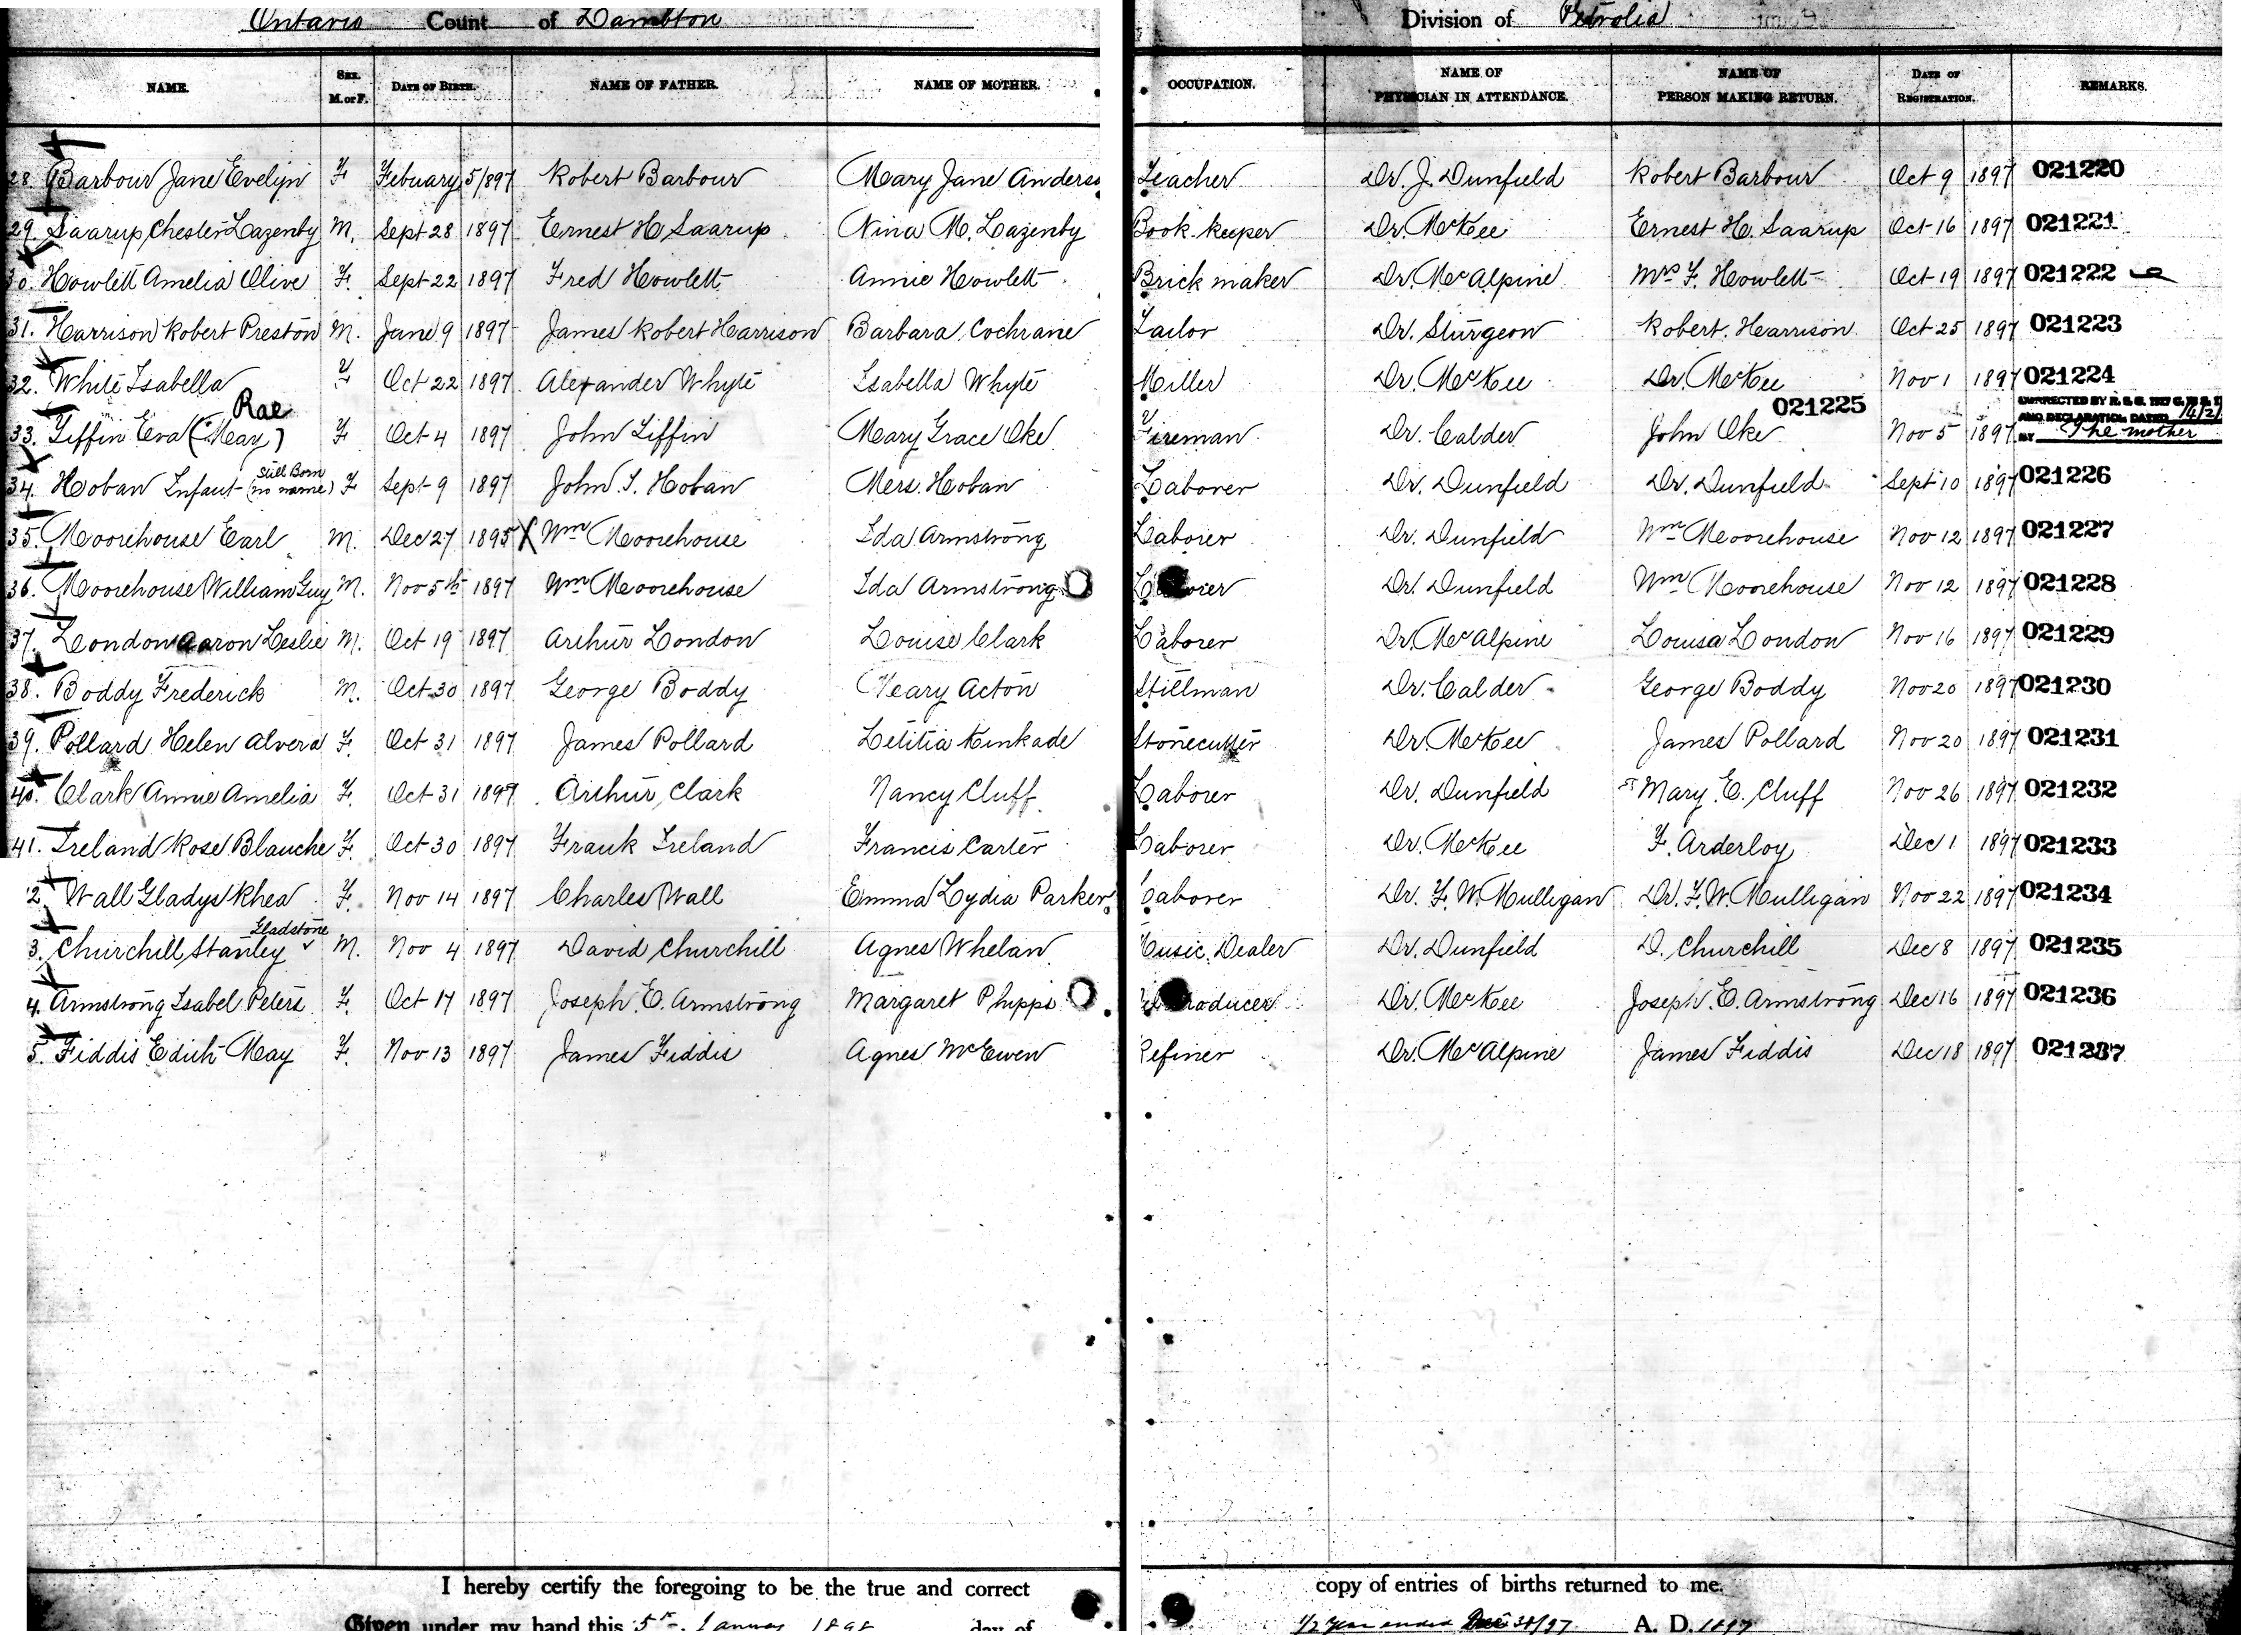 Ontario Count of Lambton Division of Petrolia
NAME. SEX. M. or F. DATE OF BIRTH. NAME OF FATHER. NAME OF MOTHER. OCCUPATION. NAME OF PHYSICIAN IN ATTENDANCE. NAME OF PERSON MAKING RETURN. DATE OF REGISTRATION. REMARKS.
28. Barbour Jane Evelyn F Febuary 5/897 Robert Barbour Mary Jane Anders Teacher Dr. J. Dunfield Robert Barbour Oct 9 1897 021220
29. Saarup Chester Lazenby M. Sept 28 1897 Ernest H Saarup Nina M. Lazenby Book-keeper Dr. McKee Ernest H. Saarup Oct 16 1897 021221
30. Howlett Amelia Olive F. Sept 22 1897 Fred Howlett Annie Howlett Brick maker Dr. McAlpine Mrs F. Howlett Oct 19 1897 021222
31. Harrison Robert Preston M. June 9 1897 James Robert Harrison Barbara Cochrane Tailor Dr. Sturgeon Robert Harrison Oct 25 1897 021223
32. White Isabella F Oct 22 1897 Alexander Whyte Isabella Whyte Miller Dr. McKee Dr. McKee Nov 1 1897 021224
33. Tiffin Eva (May) Rae F Oct 4 1897 John Tiffin Mary Grace Oke Fireman Dr. Calder John Oke 021225 Nov 5 1897 CORRECTED BY R.S.O. AND DECLARATION DATED BY The mother
34. Hoban Infant (Still Born no name) F Sept 9 1897 John T. Hoban Mers. Hoban Laborer Dr. Dunfield Dr. Dunfield Sept 10 1897 021226
35. Moorehouse Earl M. Dec 27 1895 X Wm Moorehouse Ida Armstrong Laborer Dr. Dunfield Wm Moorehouse Nov 12 1897 021227
36. Moorehouse William Guy M. Nov 5th 1897 Wm Moorehouse Ida Armstrong Laborer Dr. Dunfield Wm Moorehouse Nov 12 1897 021228
37. London Aaron Leslie M. Oct 19 1897 Arthur London Louise Clark Laborer Dr. McAlpine Louisa London Nov 16 1897 021229
38. Boddy Frederick M. Oct 30 1897 George Boddy Mary Acton Stillman Dr. Calder George Boddy Nov 20 1897 021230
39. Pollard Helen Alvera F. Oct 31 1897 James Pollard Letitia Kinkade Stonecutter Dr. McKee James Pollard Nov 20 1897 021231
40. Clark Annie Amelia F. Oct 31 1897 Arthur Clark Nancy Cluff Laborer Dr. Dunfield Mary E. Cluff Nov 26 1897 021232
41. Ireland Rose Blanche F. Oct 30 1897 Frank Ireland Francis Carter Laborer Dr. McKee F. Arderloy Dec 1 1897 021233
2. Wall Gladys Rhea F. Nov 14 1897 Charles Wall Emma Lydia Parker Laborer Dr. F. W. Mulligan Dr. F. W. Mulligan Nov 22 1897 021234
3. Churchill Stanley Gladstone M. Nov 4 1897 David Churchill Agnes Whelan Music Dealer Dr. Dunfield D. Churchill Dec 8 1897 021235
4. Armstrong Isabel Peters F. Oct 17 1897 Joseph E. Armstrong Margaret Phipps Producer Dr. McKee Joseph E. Armstrong Dec 16 1897 021236
5. Fiddis Edith May F. Nov 13 1897 James Fiddis Agnes McEwen Refiner Dr. McAlpine James Fiddis Dec 18 1897 021237
I hereby certify the foregoing to be the true and correct copy of entries of births returned to me.
Given under my hand this 5th January 1898 day of 1/2 year ended Dec 30/97 A. D. 1897